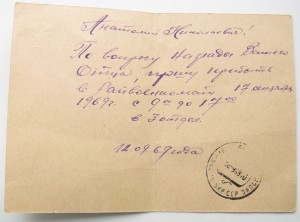 Анатолий Николаевич!
По вопросу награды Вашего
Отца, прошу прибыть
в Райвоенкомат 17 апреля
1969г. с 9 00 до 17 00
в
12.04.69 года